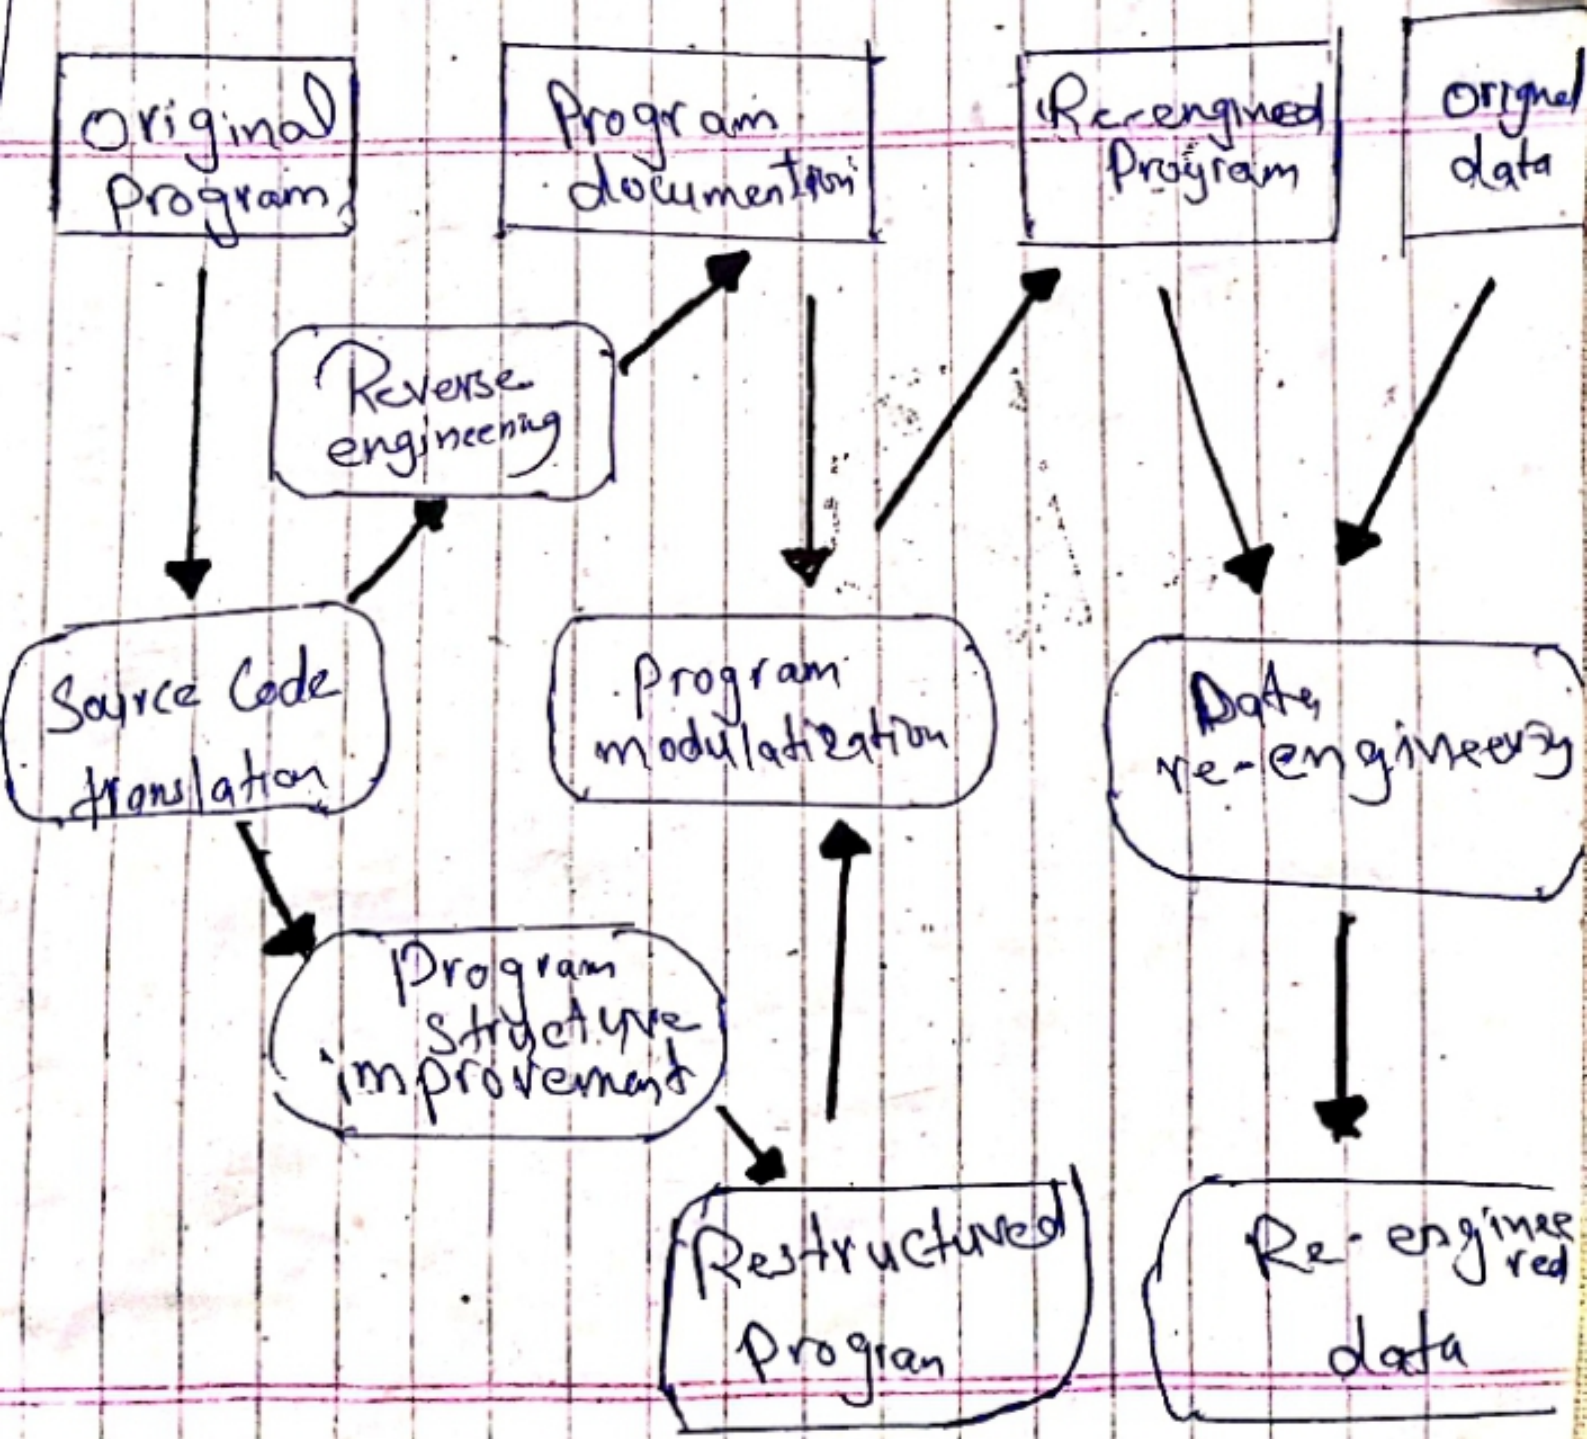 Original
Program
Program
documention
Re-engineed
Program
Orignal
data
Reverse
engineering
Source Code
translation
Program
modulatization
Data
re-engineering
Program
structure
improvement
Restructured
Program
Re-enginee
red
data